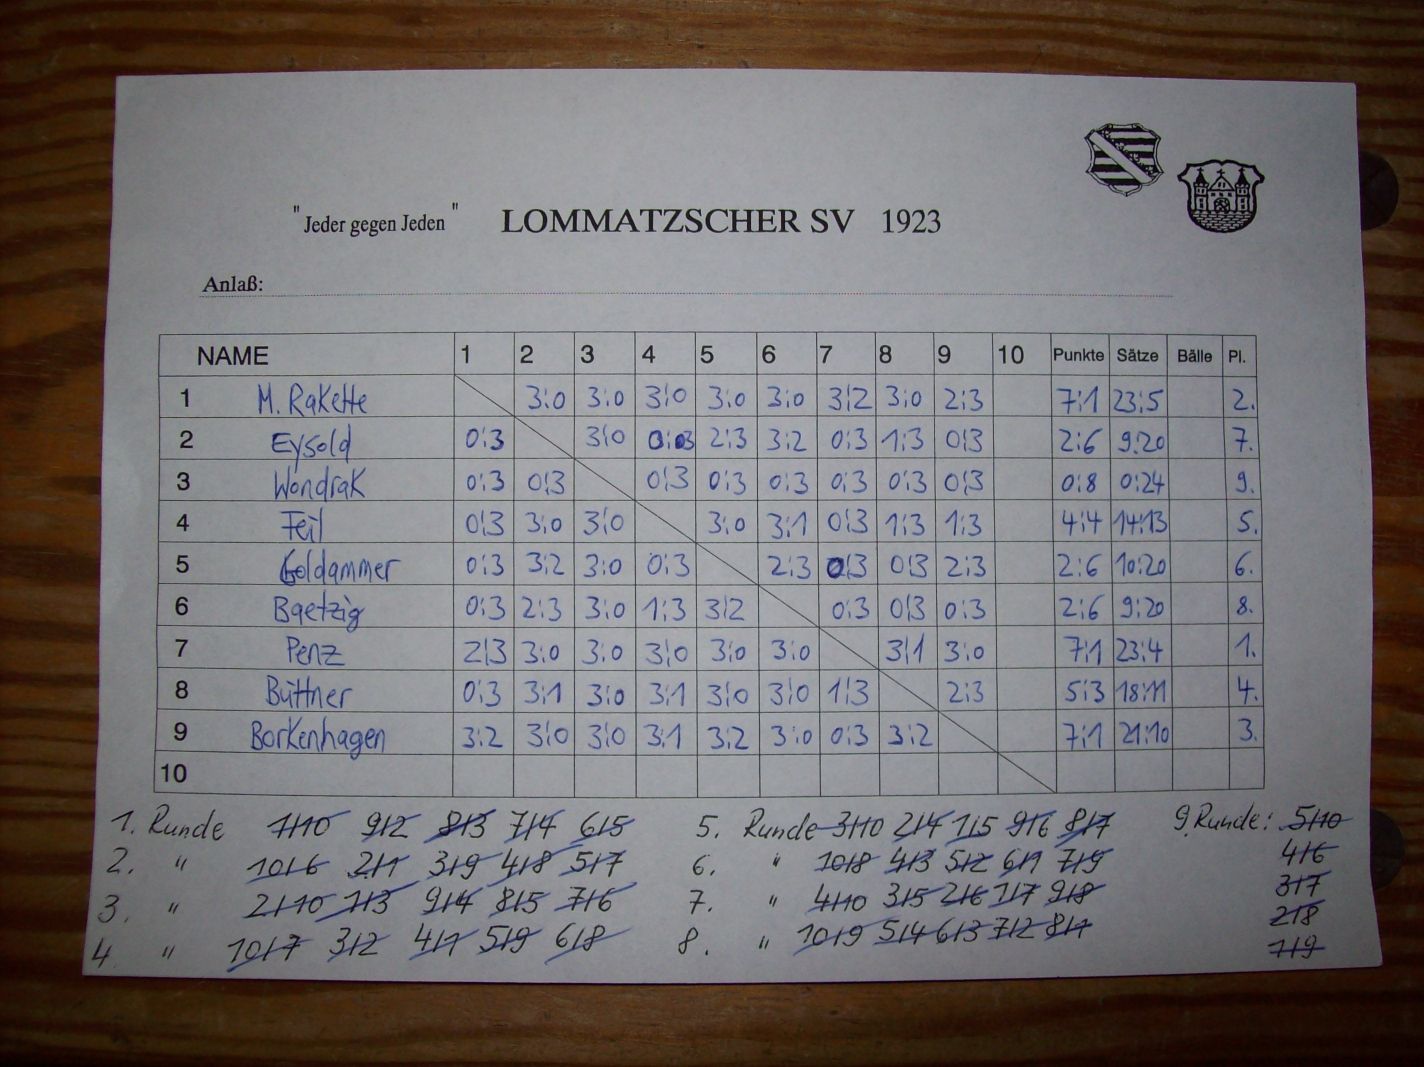 "Jeder gegen Jeden" LOMMATZSCHER SV 1923
Anlaß:
NAME 1 2 3 4 5 6 7 8 9 10 Punkte Sätze Bälle Pl.
1 M. Rakette 3:0 3:0 3:0 3:0 3:0 3:2 3:0 2:3 7:1 23:5 2.
2 Eysold 0:3 3:0 0:3 2:3 3:2 0:3 1:3 0:3 2:6 9:20 7.
3 Wondrak 0:3 0:3 0:3 0:3 0:3 0:3 0:3 0:3 0:8 0:24 9.
4 Feil 0:3 3:0 3:0 3:0 3:1 0:3 1:3 1:3 4:4 14:13 5.
5 Goldammer 0:3 3:2 3:0 0:3 2:3 0:3 0:3 2:3 2:6 10:20 6.
6 Baetzig 0:3 2:3 3:0 1:3 3:2 0:3 0:3 0:3 2:6 9:20 8.
7 Penz 2:3 3:0 3:0 3:0 3:0 3:0 3:1 3:0 7:1 23:4 1.
8 Büttner 0:3 3:1 3:0 3:1 3:0 3:0 1:3 2:3 5:3 18:11 4.
9 Borkenhagen 3:2 3:0 3:0 3:1 3:2 3:0 0:3 3:2 7:1 21:10 3.
10
1. Runde 1/10 9/2 8/3 7/4 6/5 5. Runde 3/10 2/4 1/5 9/6 8/7 9. Runde: 5/10
2. " 10/6 2/1 3/9 4/8 5/7 6. " 10/8 4/3 5/2 6/1 7/9 4/6
3. " 2/10 1/3 9/4 8/5 7/6 7. " 4/10 3/5 2/6 1/7 9/8 3/7
4. " 10/7 3/2 4/1 5/9 6/8 8. " 10/9 5/4 6/3 7/2 8/1 2/8
1/9